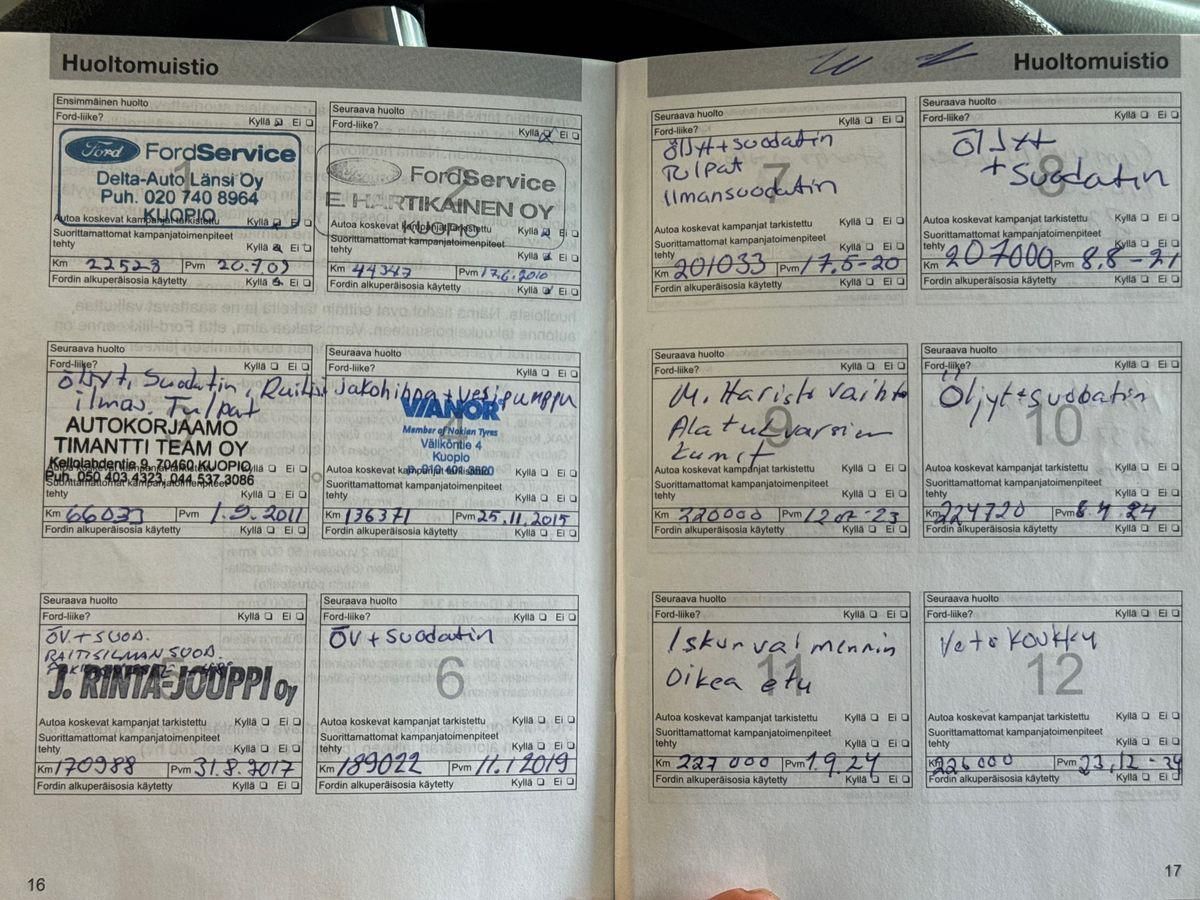 Huoltomuistio
Ensimmäinen huolto
Ford-liike? Kyllä Ei
Ford FordService
Delta-Auto Länsi Oy
Puh. 020 740 8964
KUOPIO
1
Autoa koskevat kampanjat tarkistettu Kyllä Ei
Suorittamattomat kampanjatoimenpiteet
tehty Kyllä Ei
Km 22523 Pvm 20.7.09
Fordin alkuperäisosia käytetty Kyllä Ei
Seuraava huolto
Ford-liike? Kyllä Ei
FordService
E. HARTIKAINEN OY
KUOPIO
2
Autoa koskevat kampanjat tarkistettu Kyllä Ei
Suorittamattomat kampanjatoimenpiteet
tehty Kyllä Ei
Km 44347 Pvm 17.6.2010
Fordin alkuperäisosia käytetty Kyllä Ei
Seuraava huolto
Ford-liike? Kyllä Ei
Öljyt, Suodatin,
ilmas. Tulpat
AUTOKORJAAMO
TIMANTTI TEAM OY
Kellolahdentie 9, 70460 KUOPIO
Puh. 050 403 4323, 044 537 3086
Suorittamattomat kampanjatoimenpiteet
tehty Kyllä Ei
Km 66033 Pvm 1.9.2011
Fordin alkuperäisosia käytetty Kyllä Ei
Seuraava huolto
Ford-liike? Kyllä Ei
jakohihna + vesipumppu
VIANOR
Member of Nokian Tyres
Väliköntie 4
Kuopio
4
Autoa koskevat kampanjat tarkistettu Kyllä Ei
Suorittamattomat kampanjatoimenpiteet
tehty Kyllä Ei
Km 136371 Pvm 25.11.2015
Fordin alkuperäisosia käytetty Kyllä Ei
Seuraava huolto
Ford-liike? Kyllä Ei
ÖV + SUOD.
RAITISILMAN SUOD.
J. RINTA-JOUPPI Oy
Autoa koskevat kampanjat tarkistettu Kyllä Ei
Suorittamattomat kampanjatoimenpiteet
tehty Kyllä Ei
Km 170988 Pvm 31.8.2017
Fordin alkuperäisosia käytetty Kyllä Ei
Seuraava huolto
Ford-liike? Kyllä Ei
ÖV + Suodatin
6
Autoa koskevat kampanjat tarkistettu Kyllä Ei
Suorittamattomat kampanjatoimenpiteet
tehty Kyllä Ei
Km 189022 Pvm 11.1 2019
Fordin alkuperäisosia käytetty Kyllä Ei
16
Huoltomuistio
Seuraava huolto
Ford-liike? Kyllä Ei
Öljyt + suodatin
Tulpat
Ilmansuodatin
7
Autoa koskevat kampanjat tarkistettu Kyllä Ei
Suorittamattomat kampanjatoimenpiteet
tehty Kyllä Ei
Km 201033 Pvm 17.5-20
Fordin alkuperäisosia käytetty Kyllä Ei
Seuraava huolto
Ford-liike? Kyllä Ei
Öljyt
+ Suodatin
8
Autoa koskevat kampanjat tarkistettu Kyllä Ei
Suorittamattomat kampanjatoimenpiteet
tehty Kyllä Ei
Km 207000 Pvm 8.8-21
Fordin alkuperäisosia käytetty Kyllä Ei
Seuraava huolto
Ford-liike? Kyllä Ei
Alatukivarsien
9
Autoa koskevat kampanjat tarkistettu Kyllä Ei
Suorittamattomat kampanjatoimenpiteet
tehty Kyllä Ei
Km 220000 Pvm
Fordin alkuperäisosia käytetty Kyllä Ei
Seuraava huolto
Ford-liike? Kyllä Ei
Öljyt + suodatin
10
Autoa koskevat kampanjat tarkistettu Kyllä Ei
Suorittamattomat kampanjatoimenpiteet
tehty Kyllä Ei
Km 224720 Pvm
Fordin alkuperäisosia käytetty Kyllä Ei
Seuraava huolto
Ford-liike? Kyllä Ei
Iskunvaimennin
Oikea etu
11
Autoa koskevat kampanjat tarkistettu Kyllä Ei
Suorittamattomat kampanjatoimenpiteet
tehty Kyllä Ei
Km 227 000 Pvm 1.9.24
Fordin alkuperäisosia käytetty Kyllä Ei
Seuraava huolto
Ford-liike? Kyllä Ei
Vetokoukku
12
Autoa koskevat kampanjat tarkistettu Kyllä Ei
Suorittamattomat kampanjatoimenpiteet
tehty Kyllä Ei
Km 226000 Pvm 23.12-24
Fordin alkuperäisosia käytetty Kyllä Ei
17